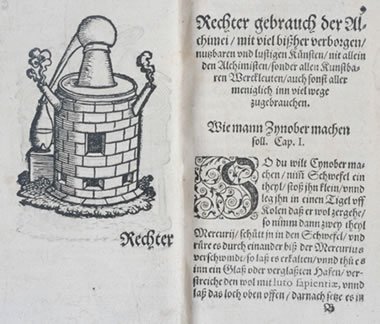 Rechter
Rechter gebrauch der Al-
chimei / mit viel bißher verborgen /
nutzbaren vnd lustigen Künsten / nit allein
den Alchimisten / sonder allen Kunstba-
ren Werckleuten / auch sonst aller
meniglich inn viel wege
zugebrauchen.
Wie mann Zynober machen
soll. Cap. I.
SO du wilt Cynober ma-
chen / nim̃ Schwefel ein
theyl / stoß jhn klein / vnnd
leg jhn in einen Tigel vff
Kolen daß er wol zergehe /
so nimm dann zwey theyl
Mercurij / schüt jn in den Schwefel / vnd
rüre es durch einander biß der Mercurius
verschwindt / so laß es erkalten / vnnd thů es
inn ein Glaß oder verglaßten Hafen / ver-
streiche den wol mit luto sapientiæ, vnnd
laß das loch oben offen / darnach setze es in